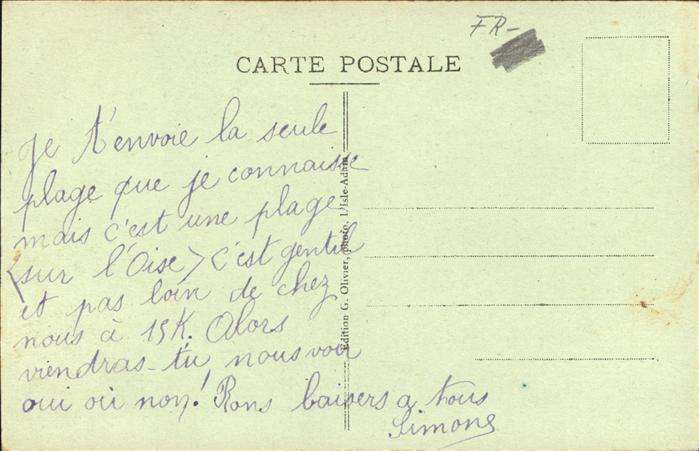 FR-
CARTE POSTALE
Je t'envoie la seule
plage que je connaisse
mais c'est une plage
<sur l'Oise> c'est gentil
et pas loin de chez
nous à 15K. Alors
viendras-tu nous voir
oui où non! Bons baisers a tous
Simone
Edition G. Olivier, photo. l'Isle-Adam